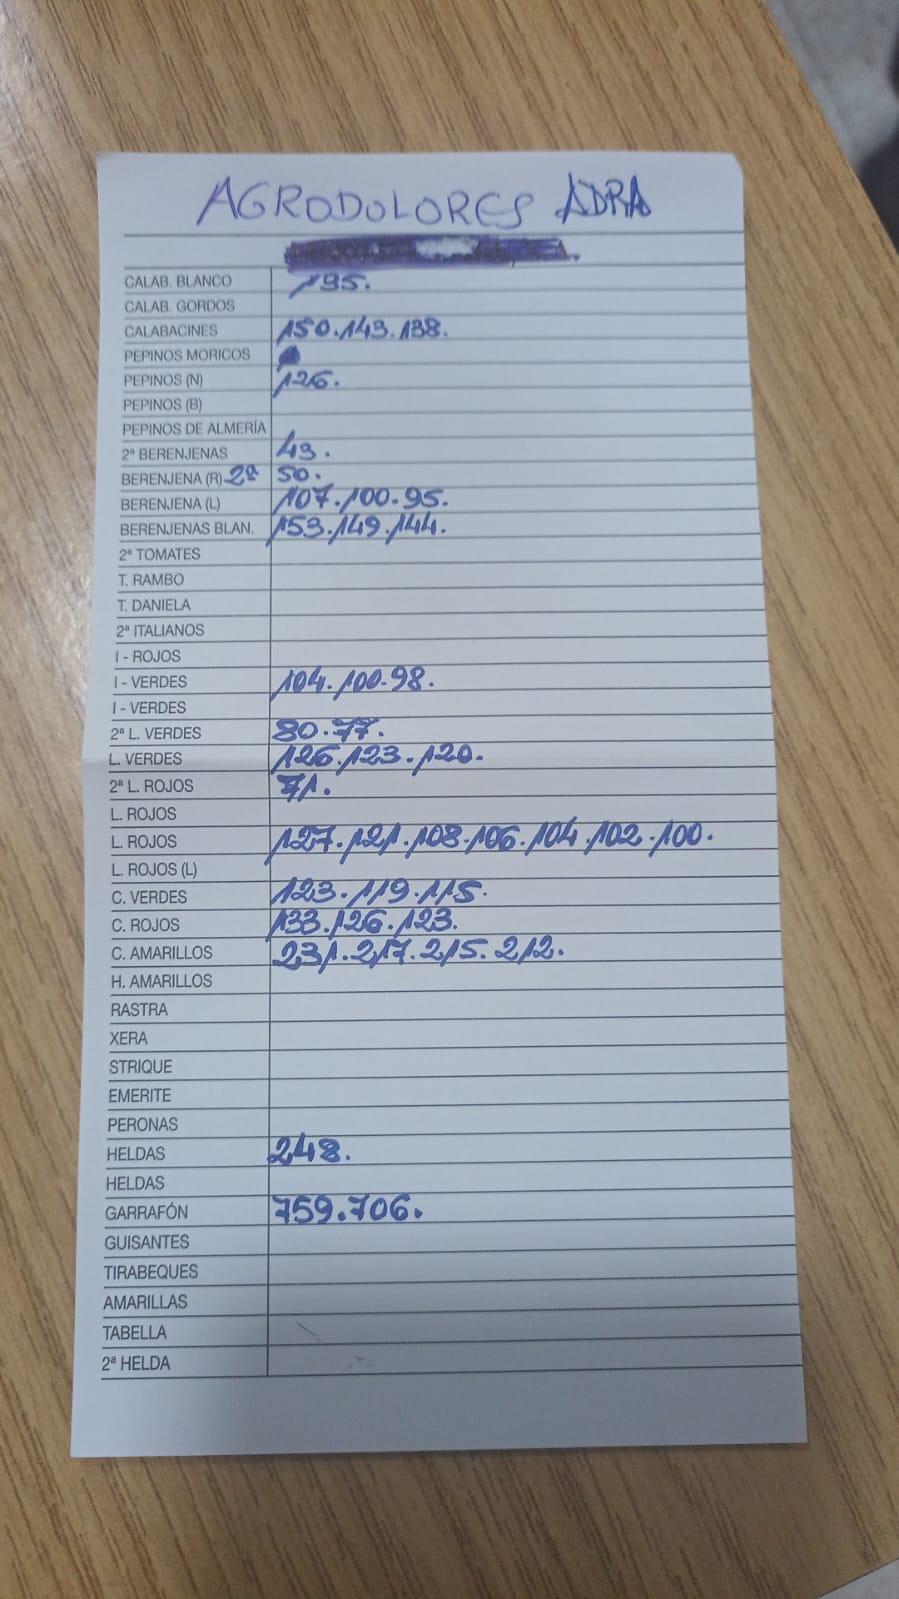 AGRODOLORES ADRA
CALAB. BLANCO 135.
CALAB. GORDOS
CALABACINES 150.143.138.
PEPINOS MORICOS
PEPINOS (N) 126.
PEPINOS (B)
PEPINOS DE ALMERÍA
2ª BERENJENAS 43.
BERENJENA (R) 2ª 50.
BERENJENA (L) 107.100.95.
BERENJENAS BLAN. 153.149.144.
2ª TOMATES
T. RAMBO
T. DANIELA
2ª ITALIANOS
I - ROJOS
I - VERDES 104.100.98.
I - VERDES
2ª L. VERDES 80.77.
L. VERDES 126.123.120.
2ª L. ROJOS 71.
L. ROJOS
L. ROJOS 127.121.108.106.104.102.100.
L. ROJOS (L)
C. VERDES 123.119.115.
C. ROJOS 133.126.123.
C. AMARILLOS 231.217.215.212.
H. AMARILLOS
RASTRA
XERA
STRIQUE
EMERITE
PERONAS
HELDAS 248.
HELDAS
GARRAFÓN 759.706.
GUISANTES
TIRABEQUES
AMARILLAS
TABELLA
2ª HELDA